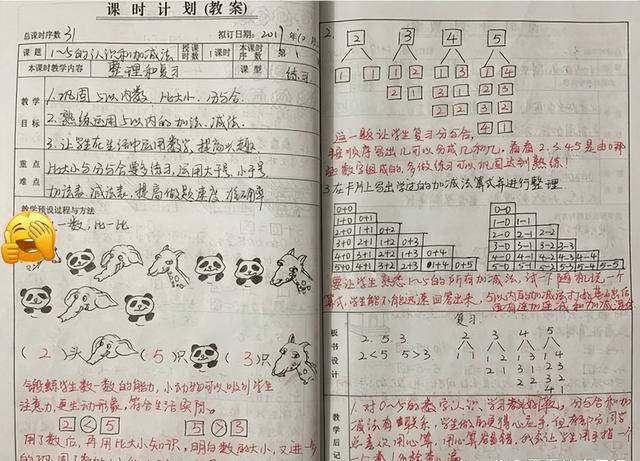 课 时 计 划 (教 案)
总课时序数 31 拟订日期：2019年12月
课 题 1~5的认识和加减法 授课时数 1课时 本课时序 数 第1
本课时教学内容 整理和复习 课 型 练习
教 学 目 标
1.巩固5以内数、比大小、分与合
2.熟练运用5以内的加法、减法.
3.让学生在生活中运用数学,提高兴趣
重 点 难 点
比大小与分与合要多练习,运用大于号,小于号,
加法表,减法表,提高做题速度,准确率
教学预设过程与方法
一数,比一比
(2)头 (5)只 (3)只
锻炼学生数一数的能力,小动物可以吸引学生
注意力,更生动形象,符合生活实际。
2<5 5>3
用了数后,再用比大小知识,明白数的大小,又进一步
2.
2 3 4 5
1 1 1 2 1 3 1 4
2 1 3 1 2 3
2 2 3 2
4 1
这一题让学生复习分与合,
按顺序写出几可以分成几和几,看看2.3.4.5是由哪
些数字组成的,多做练习可以巩固达到熟练!
3.在卡片上写出学过的加减法算式并进行整理.
0+0
1+0 0+1
2+0 1+1 0+2
3+0 2+1 1+2 0+3
4+0 3+1 2+2 1+3 0+4
5+0 4+1 3+2 2+3 1+4 0+5
0-0
1-0 1-1
2-0 2-1 2-2
3-0 3-1 3-2 3-3
4-0 4-1 4-2 4-3 4-4
5-0 5-1 5-2 5-3 5-4 5-5
要让学生熟悉1~5的所有加减法,试一下随机说一个
算式,学生能不能迅速回答出来,5以内的加减法
还有连加连减和加减混合
板 书 设 计
复习
2. 5. 3 2 3 4 5
2<5 5>3 1 1 1 2 1 3 1 4
2 1 2 2 2 3
3 1 3 2
4 1
教 学 后 记
1.对0~5的数字认识、学习
减法有联系,学生做的更得心应手,但有部分同学
总喜欢用心算,用心算容易错,我会让学生用手指一个